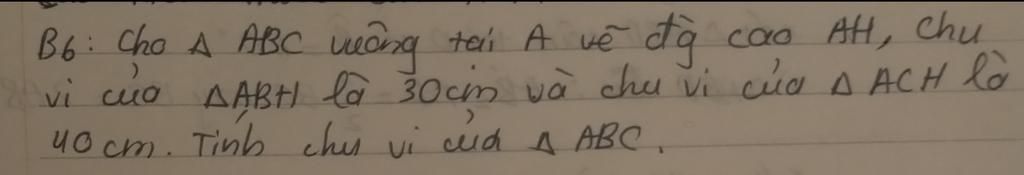 B6: Cho Δ ABC vuông tại A vẽ đg cao AH, Chu
vi của ΔABH là 30cm và chu vi của Δ ACH là
40cm. Tính chu vi của Δ ABC.